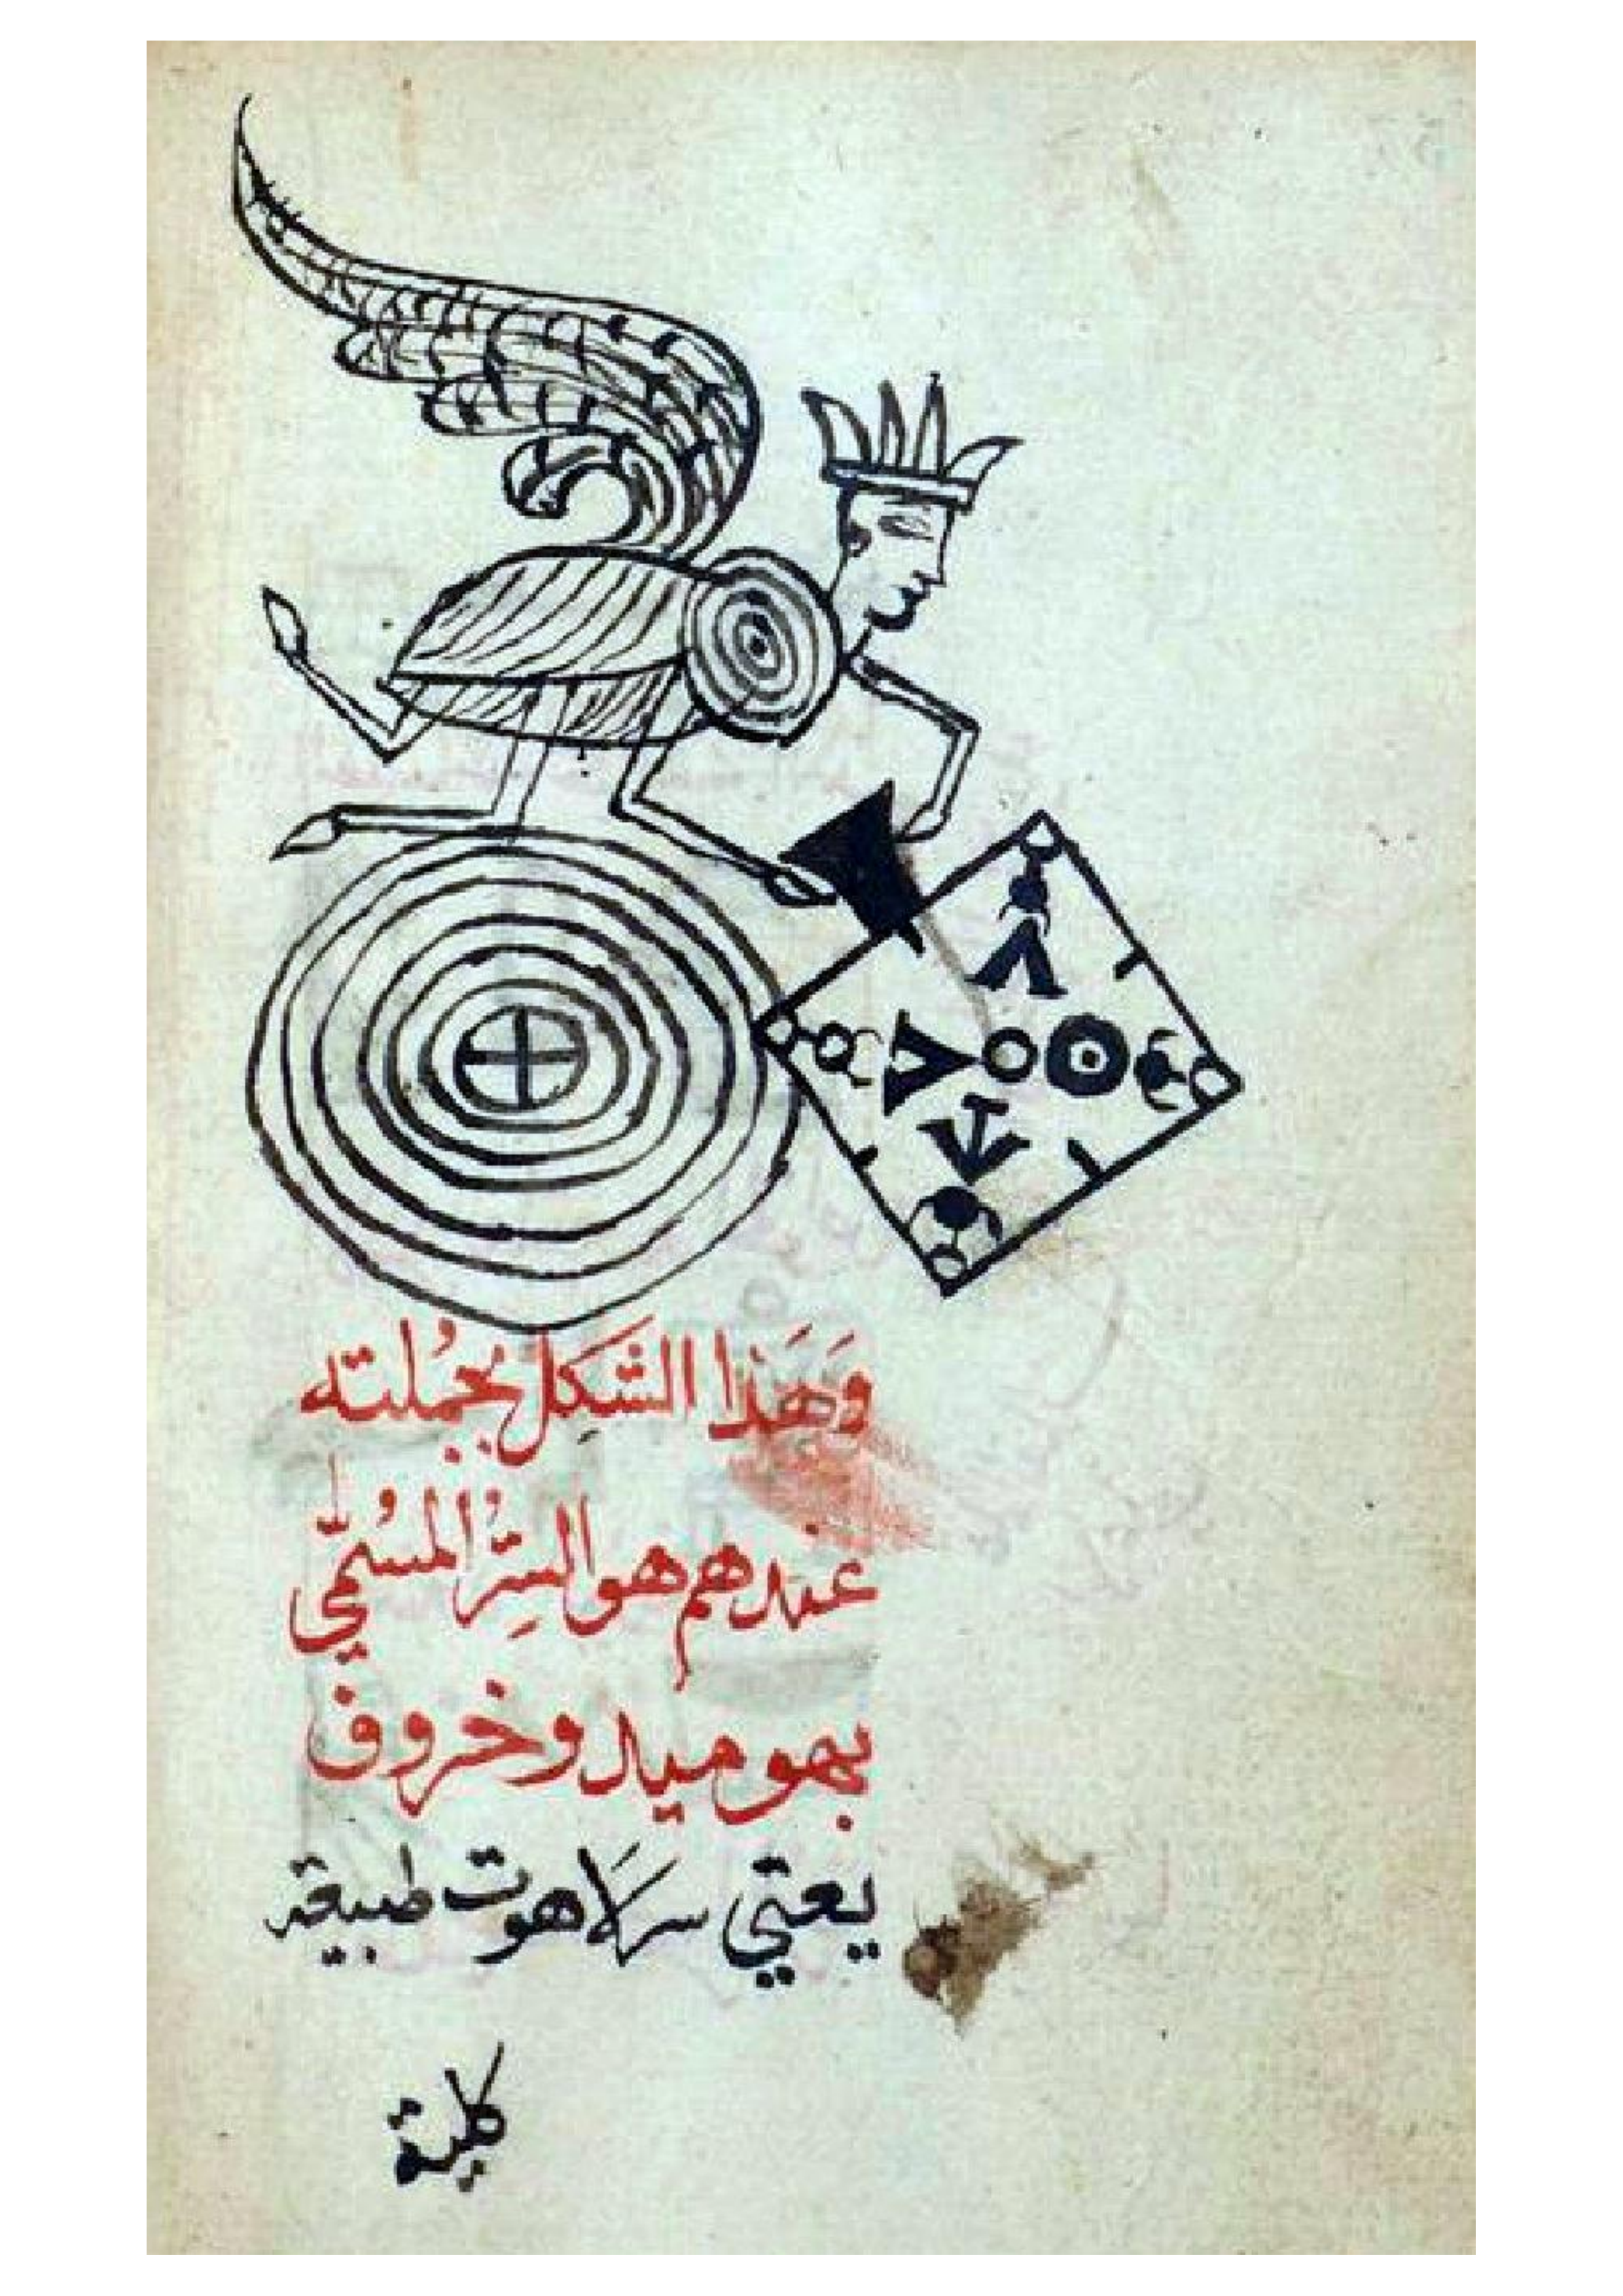 وَهَذا الشَكِل بجُملته
عندهم هو السِرُّ المسُمّىٰ
بهوميد وخروف
يعني سرلاهوت طبيعة
كلية